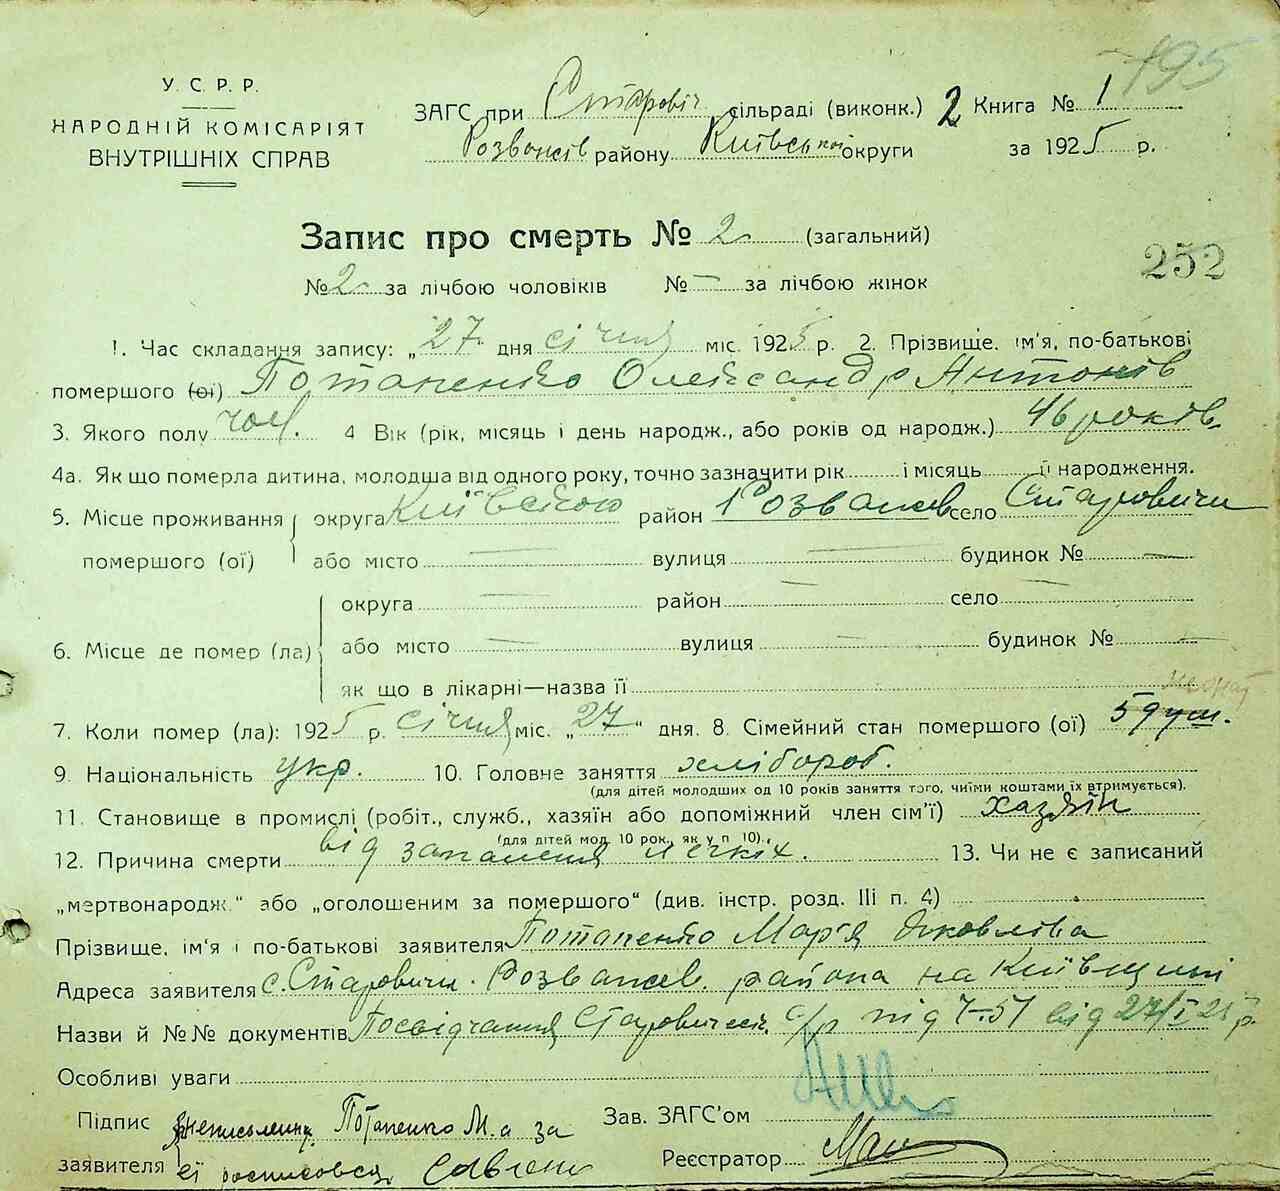 195
У. С. Р. Р.
НАРОДНІЙ КОМІСАРІЯТ
ВНУТРІШНІХ СПРАВ
ЗАГС при Старовіч. сільраді (виконк.) 2 Книга № 1
Розважів району Київської округи за 1925 р.
Запис про смерть № 2 (загальний)
252
№ 2 за лічбою чоловіків № — за лічбою жінок
1. Час складання запису: „27" дня січня міс. 1925 р. 2. Прізвище, ім'я, по-батькові
помершого (ої) Потапенко Олександр Антонів
3. Якого полу чол. 4 Вік (рік, місяць і день народж., або років од народж.) 46 років
4а. Як що померла дитина, молодша від одного року, точно зазначити рік і місяць її народження.
5. Місце проживання округа Київською район Розважев село Старовичи
помершого (ої) або місто — вулиця — будинок № —
округа — район — село —
6. Місце де помер (ла) або місто — вулиця — будинок № —
як що в лікарні—назва її
7. Коли помер (ла): 1925 р. січня міс. „27" дня. 8. Сімейний стан помершого (ої) 5 душ.
9. Національність укр. 10. Головне заняття хлібороб.
(для дітей молодших од 10 років заняття того, чиїми коштами їх втримується).
11. Становище в промислі (робіт., служб., хазяїн або допоміжний член сім'ї) хазяїн
(для дітей мол. 10 рок., як у п 10).
12. Причина смерти від запаления легких. 13. Чи не є записаний
„мертвонародж." або „оголошеним за помершого" (див. інстр. розд. III п. 4)
Прізвище, ім'я і по-батькові заявителя Потапенко Мар'я Яковлівa
Адреса заявителя с. Старовичи. Розважев. района на Київщині
Назви й №№ документів Посвідчання Старовичськ. с/р під № 51 від 27/I 25 р.
Особливі уваги
Підпис неписьменну Потапенко М.а за Зав. ЗАГС'ом
заявителя її росписовся Реєстратор